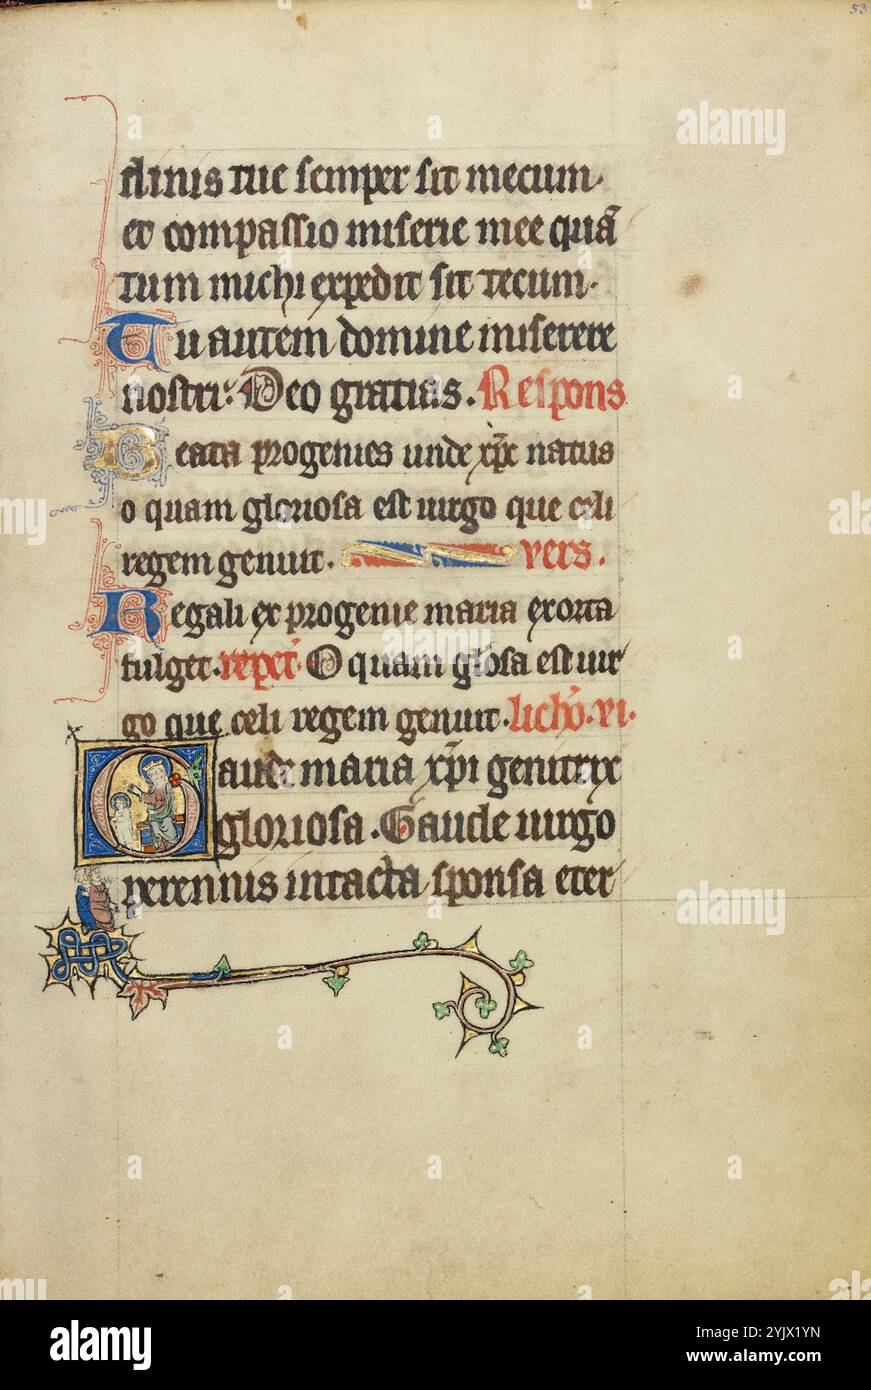 53
dinis tue semper sit mecum·
et compassio miserie mee quā
tum michi expedit sit tecum·
Tu autem domine miserere
nostri: Deo gratias. Respons
Beata progenies unde xp̄c natus
o quam gloriosa est uirgo que celi
regem genuit. vers.
Regali ex progenie maria exorta
fulget. repet̄. O quam gl̄osa est uir
go que celi regem genuit. lichō. vi.
Gaude maria xp̄i genitrix
gloriosa. Gaude uirgo
perennius intacta sponsa eter
alamy
Image ID: 2YJX1YN
www.alamy.com